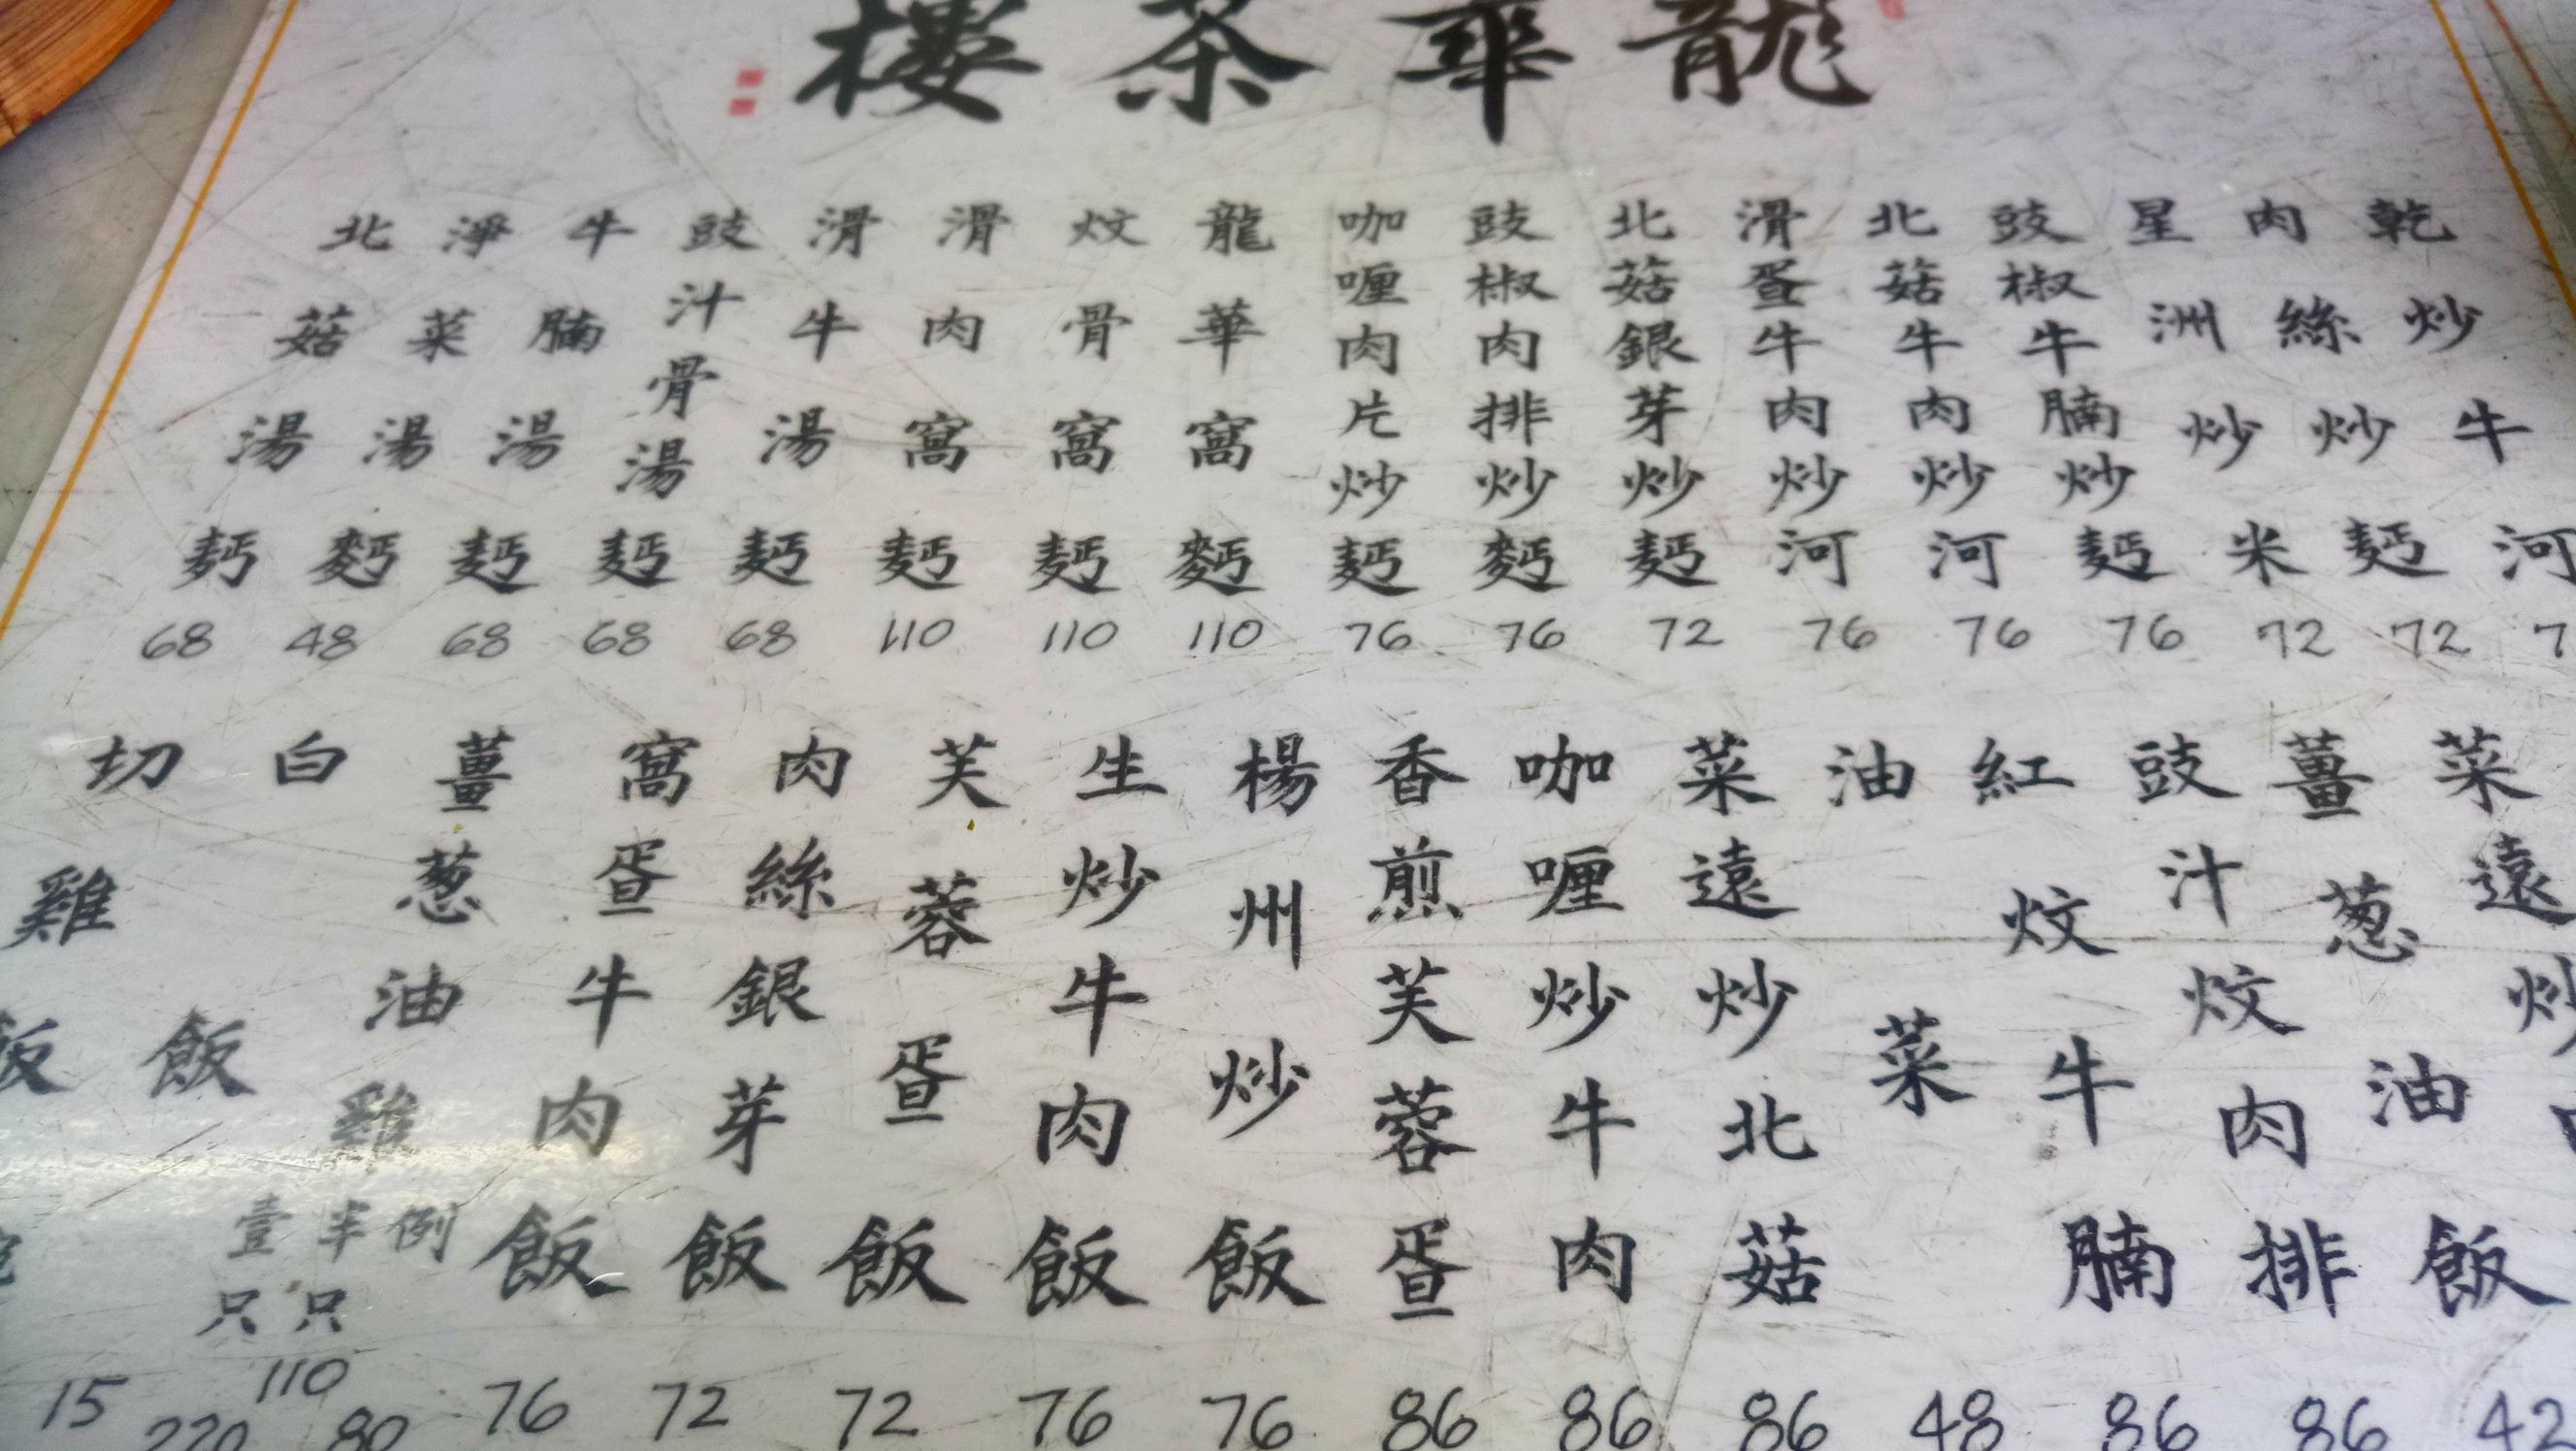 龍華茶樓
乾炒牛河
肉絲炒麪 72
星洲炒米 72
豉椒牛腩炒麪 76
北菇牛肉炒河 76
滑蛋牛肉炒河 76
北菇銀芽炒麪 72
豉椒肉排炒麪 76
咖喱肉片炒麪 76
龍華窩麪 110
炆骨窩麪 110
滑肉窩麪 110
滑牛湯麪 68
豉汁骨湯麪 68
牛腩湯麪 68
淨菜湯麪 48
北菇湯麪 68
菜遠炒
薑葱油飯 42
豉汁炆肉排 86
紅炆牛腩 86
油菜 48
菜遠炒北菇 86
咖喱炒牛肉 86
香煎芙蓉蛋 86
楊州炒飯 76
生炒牛肉飯 76
芙蓉蛋飯 72
肉絲銀芽飯 72
窩蛋牛肉飯 76
薑葱油雞
例 80
半只 110
壹只 220
白飯 15
切雞飯